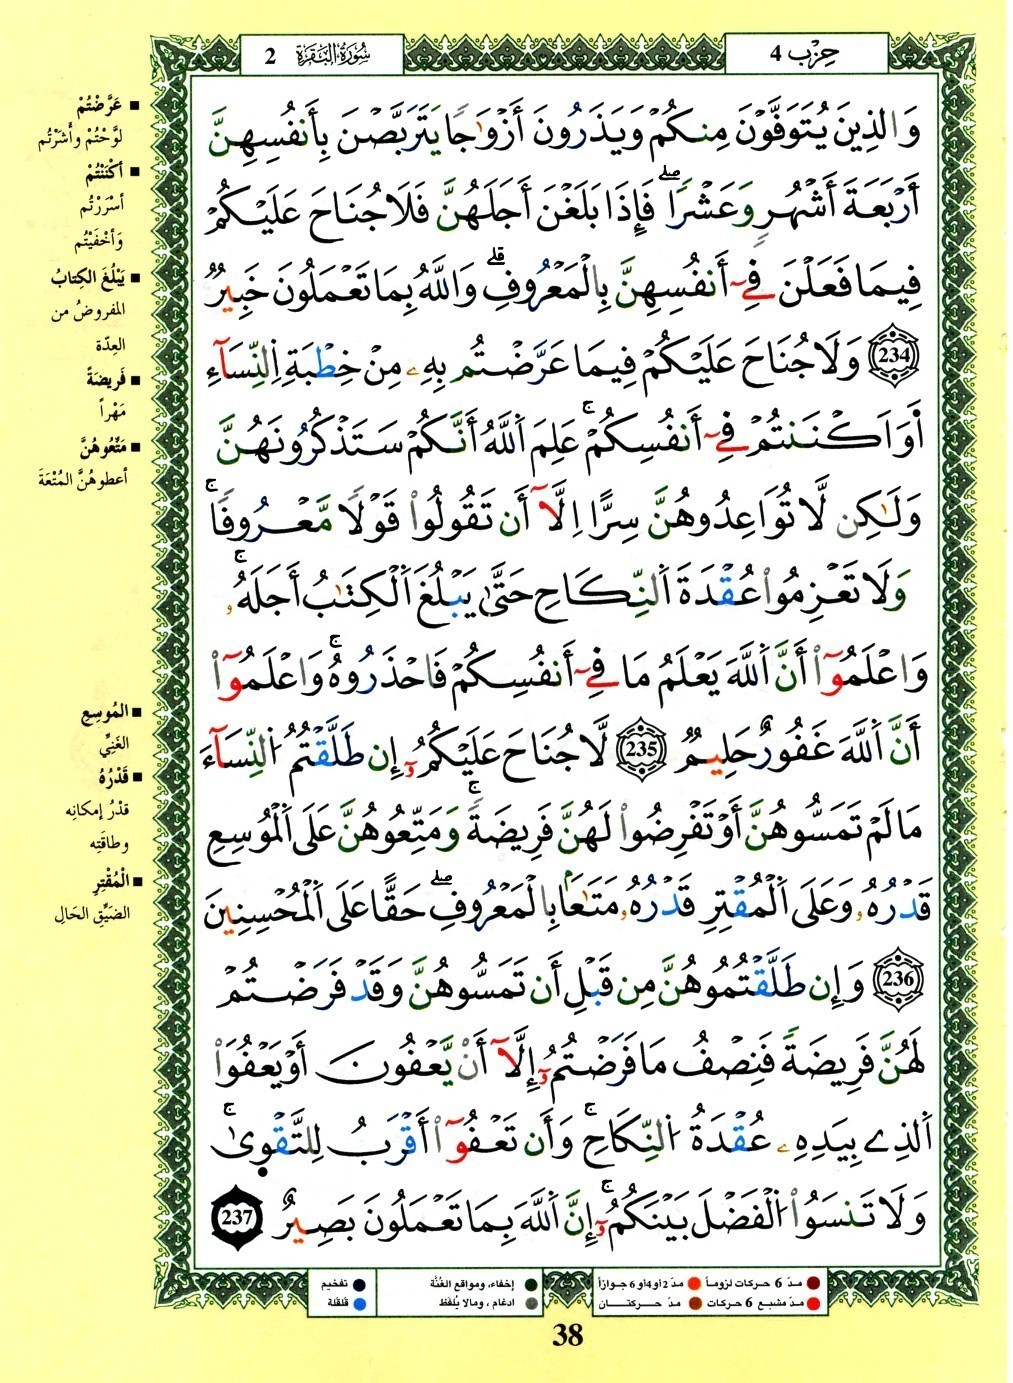 حِزْب 4
سُورَةُ البَقَرَة 2
وَالذِينَ يُتَوَفَّوْنَ مِنكُمْ وَيَذَرُونَ أَزْوَٰجاً يَتَرَبَّصْنَ بِأَنفُسِهِنَّ
أَرْبَعَةَ أَشْهُرٍ وَعَشْراًۖ فَإِذَا بَلَغْنَ أَجَلَهُنَّ فَلَا جُنَاحَ عَلَيْكُمْ
فِيمَا فَعَلْنَ فِےٓ أَنفُسِهِنَّ بِالْمَعْرُوفِۗ وَاللَّهُ بِمَا تَعْمَلُونَ خَبِيرٌ
234 وَلَا جُنَاحَ عَلَيْكُمْ فِيمَا عَرَّضْتُم بِهِۦ مِنْ خِطْبَةِ اِلنِّسَآءِ
أَوَ اَكْنَنتُمْ فِےٓ أَنفُسِكُمْۚ عَلِمَ اَللَّهُ أَنَّكُمْ سَتَذْكُرُونَهُنَّ
وَلَٰكِن لَّا تُوَاعِدُوهُنَّ سِرّاً اِلَّآ أَن تَقُولُواْ قَوْلاً مَّعْرُوفاًۚ
وَلَا تَعْزِمُواْ عُقْدَةَ اَلنِّكَاحِ حَتَّىٰ يَبْلُغَ اَلْكِتَٰبُ أَجَلَهُۥۚ
وَاعْلَمُوٓاْ أَنَّ اَللَّهَ يَعْلَمُ مَا فِےٓ أَنفُسِكُمْ فَاحْذَرُوهُۚ وَاعْلَمُوٓاْ
أَنَّ اَللَّهَ غَفُورٌ حَلِيمٌ 235 لَّا جُنَاحَ عَلَيْكُمُۥٓ إِن طَلَّقْتُمُ اُلنِّسَآءَ
مَا لَمْ تَمَسُّوهُنَّ أَوْ تَفْرِضُواْ لَهُنَّ فَرِيضَةًۚ وَمَتِّعُوهُنَّ عَلَى اَلْمُوسِعِ
قَدْرُهُۥ وَعَلَى اَلْمُقْتِرِ قَدْرُهُۥ مَتَٰعاً بِالْمَعْرُوفِۖ حَقّاً عَلَى اَلْمُحْسِنِينَ
236 وَإِن طَلَّقْتُمُوهُنَّ مِن قَبْلِ أَن تَمَسُّوهُنَّ وَقَدْ فَرَضْتُمْ
لَهُنَّ فَرِيضَةً فَنِصْفُ مَا فَرَضْتُمُۥٓ إِلَّآ أَنْ يَّعْفُونَ أَوْ يَعْفُوَاْ
اَلذِے بِيَدِهِۦ عُقْدَةُ اُلنِّكَاحِۚ وَأَن تَعْفُوٓاْ أَقْرَبُ لِلتَّقْوِىٰۚ
وَلَا تَنسَوُاْ اُلْفَضْلَ بَيْنَكُمُۥٓۚ إِنَّ اَللَّهَ بِمَا تَعْمَلُونَ بَصِيرٌ 237
■ عَرَّضْتُمْ
لَوَّحْتُمْ وأَشَرْتُم
■ أَكْنَنْتُمْ
أَسْرَرْتُم
وَأَخْفَيْتُم
■ يَبْلُغَ الكِتابُ
المفروضُ من
العِدّة
■ فَرِيضَةً
مَهْراً
■ مَتِّعُوهُنَّ
أعطوهُنَّ المُتْعَةَ
■ المُوسِعِ
الغَنِيِّ
■ قَدْرُهُ
قدْرُ إمكانِه
وطاقَتِه
■ الْمُقْتِرِ
الضَيِّقِ الحَالِ
مدّ 6 حركات لزوماً
مدّ 2 أو 4 أو 6 جوازاً
إخفاء، ومواقع الغُنَّة
تفخيم
مدّ مشبع 6 حركات
مدّ حركتان
ادغام ، ومالا يُلفَظ
قلقلة
38